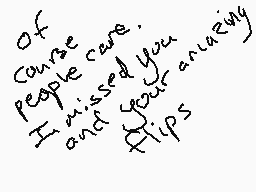 of
course
people care.
I missed you
and your amazing
flips